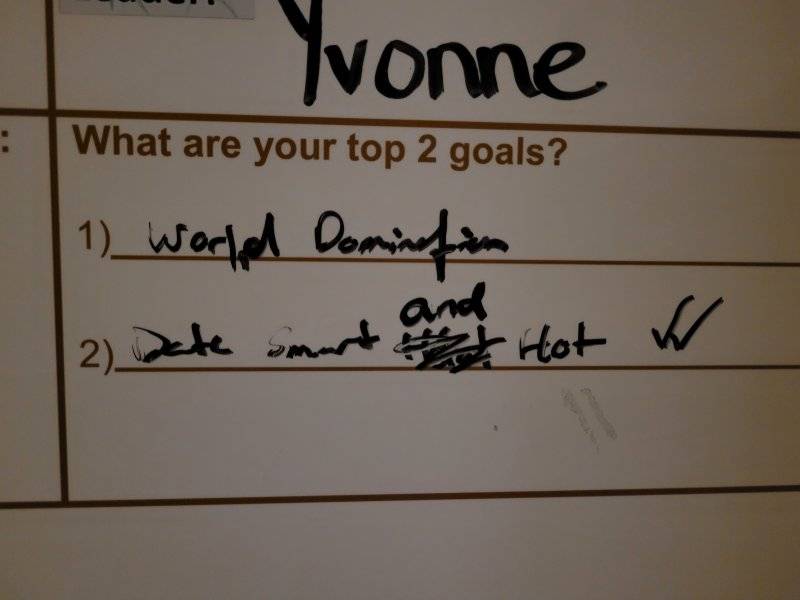 Yvonne
: What are your top 2 goals?
1) World Domination
and
2) Date Smart Hot